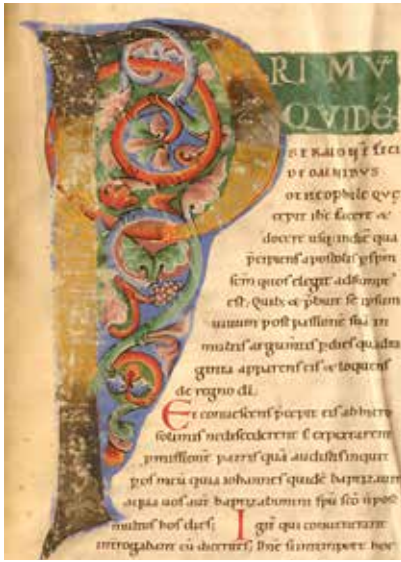 PRIMV̄
QVIDĒ
SERMONĒ FECI
DE OMNIBVS
O THEOPHILE QVE
cepit ihc facere &
docere usq; in diē qua
p̄cipiens apostolis p spm̄
scm̄ quos elegit adsumpt'
est. Quib; & p̄buit se ipsum
uiuum post passionē suā in
multis argum̄tis p dies quadra
ginta apparens eis & loquens
de regno dī.
Et conuescens p̄cepit eis ab hiero
solimis ne discederent s; expectarent
pmissionē patris quā audistis inquit
p os meū quia iohannes quidē baptizauit
aqua uos aut̄ baptizabimini spū scō n̄ post
multos hos dies; Igit̄ qui conuenerant
interrogabant eū dicentes; Dn̄e si in tempore hoc